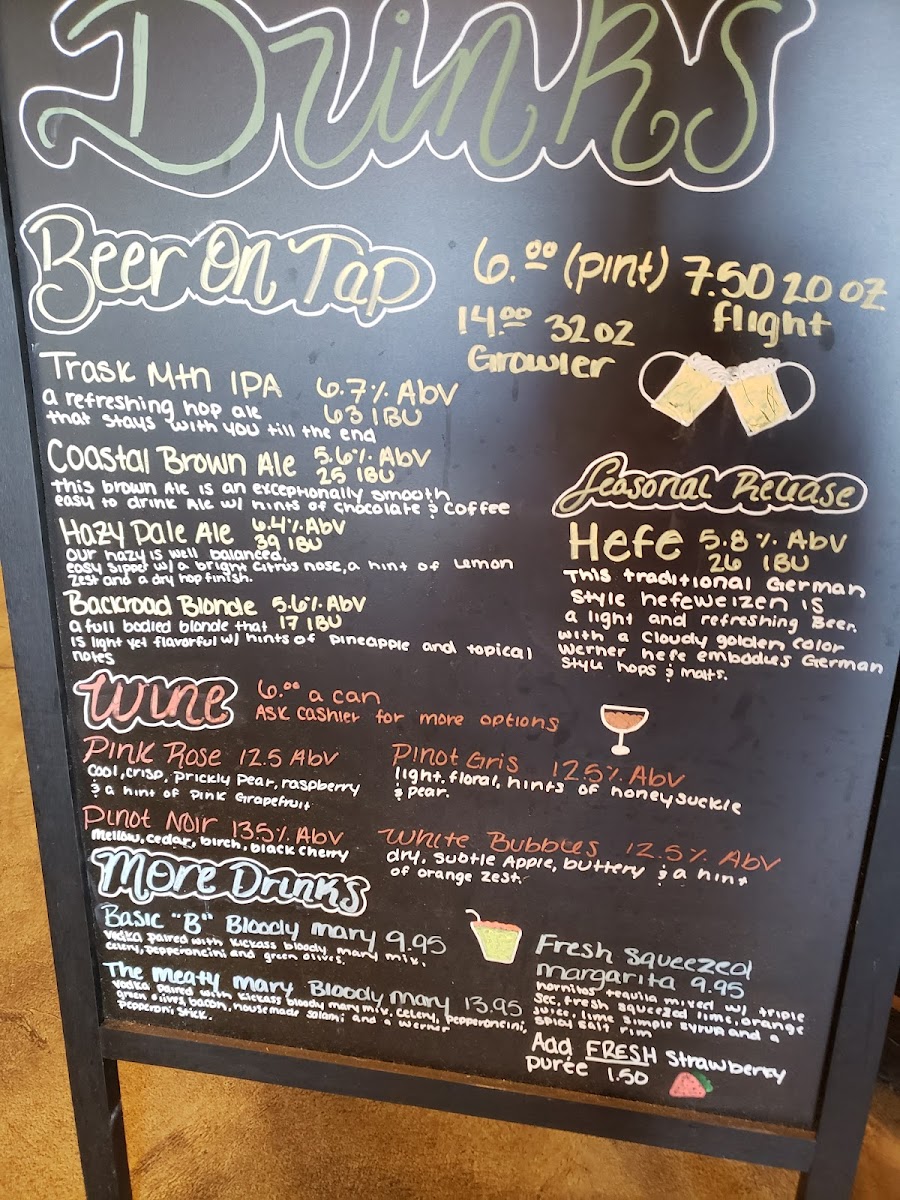 Drinks
Beer On Tap
6.00 (pint) 7.50 20 oz
flight
14.00 32 oz
Growler
Trask Mtn IPA 6.7% AbV
63 IBU
a refreshing hop ale
that stays with you till the end
Coastal Brown Ale 5.6% AbV
25 IBU
this brown Ale is an exceptionally smooth
easy to drink Ale w/ hints of chocolate & coffee
Hazy Pale Ale 6.4% AbV
39 IBU
our hazy is well balanced,
easy sipper w/ a bright citrus nose, a hint of Lemon
zest and a dry hop finish.
Backroad Blonde 5.6% AbV
17 IBU
a full bodied blonde that
is light yet flavorful w/ hints of pineapple and topical
notes
Seasonal Release
Hefe 5.8% AbV
26 IBU
This traditional German
style hefeweizen is
a light and refreshing Beer.
with a cloudy golden color
Werner hefe embodies German
style hops & malts.
Wine
6.00 a can
Ask cashier for more options
Pink Rose 12.5 AbV
cool, crisp, prickly pear, raspberry
& a hint of Pink Grapefruit
Pinot Gris 12.5% AbV
light, floral, hints of honeysuckle
& pear.
Pinot Noir 13.5% AbV
mellow, cedar, birch, black cherry
White Bubbles 12.5% AbV
dry, subtle Apple, buttery & a hint
of orange zest.
More Drinks
Basic "B" Bloody mary 9.95
vodka paired with kickass bloody mary mix,
celery, pepperoncini and green olives.
The meaty mary Bloody mary 13.95
vodka paired with kickass bloody mary mix, celery, pepperoncini,
green olives, bacon, housemade salami and a werner
pepperoni stick.
Fresh squeezed
margarita 9.95
hornitos tequila mixed w/ triple
sec, fresh squeezed lime, orange
juice, lime simple syrup and a
spicy salt rim
Add FRESH strawberry
purée 1.50